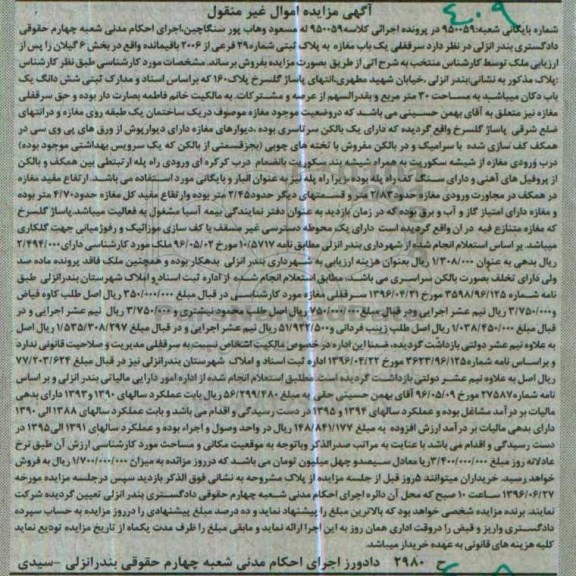 ۴۰۹
آگهی مزایده اموال غیر منقول
شماره بایگانی شعبه:۹۵۰۰۵۹ در پرونده اجرائی کلاسه ۹۵۰۰۵۹ له مسعود وهاب پور سنگاچین،اجرای احکام مدنی شعبه چهارم حقوقی
دادگستری بندر انزلی در نظر دارد سرقفلی یک باب مغازه به پلاک ثبتی شماره ۲۹ فرعی از ۲۰۰۶ باقیمانده واقع در بخش ۶ گیلان را پس از
ارزیابی ملک توسط کارشناس منتخب به شرح آتی از طریق بصورت مزایده بفروش برساند. مشخصات مورد کارشناسی طبق نظر کارشناس
:پلاک مذکور به نشانی:بندر انزلی ،خیابان شهید مطهری،انتهای پاساژ گلسرخ پلاک ۱۶۰ که براساس اسناد و مدارک ثبتی شش دانگ یک
باب دکان میباشد به مساحت ۳۰ متر مربع و بقدرالسهم از عرصه و مشترکات. به مالکیت خانم فاطمه بصارت دار بوده و حق سرقفلی
مغازه نیز متعلق به آقای بهمن حسینی می باشد که دروضعیت موجود مغازه موصوف دریک ساختمان یک طبقه روی مغازه و درانتهای
ضلع شرقی پاساژ گلسرخ واقع گردیده که دارای یک بالکن سرتاسری بوده ،دیوارهای مغازه دارای دیوارپوش از ورق های پی وی سی در
همکف کف سازی شده با سرامیک و در بالکن مفروش با تخته های چوبی (بجزقسمتی از بالکن که یک سرویس بهداشتی موجود بوده)
درب ورودی مغازه از شیشه سکوریت به همراه شیشه بند سکوریت بانضمام درب کرکره ای ورودی راه پله ارتبطی بین همکف و بالکن
از پروفیل های آهنی و دارای سنگ کف راه پله بوده ،زیرا راه پله نیز به عنوان انبار و بایگانی مورد استفاده می باشد. ارتفاع مفید مغازه
در همکف در مجاورت ورودی مغازه حدود ۲/۸۳ متر و قسمتهای دیگر حدود ۲/۴۵ متر بوده وارتفاع مفید کل مغازه حدود ۴/۷۰ متر بوده
و مغازه دارای امتیاز گاز و آب و برق بوده که در زمان بازدید به عنوان دفتر نمایندگی بیمه آسیا مشغول به فعالیت میباشد.پاساژ گلسرخ
که مغازه متنازع فیه در ان واقع گردیده است دارای یک محوطه دسترسی غیر مسقف با کف سازی موزائیک و رفوژمیانی جهت گلکاری
میباشد. بر اساس استعلام انجام شده از شهرداری بندر انزلی مطابق نامه ۱۰/۵۷۱۷ مورخ ۹۶/۰۵/۰۲ ملک مورد کارشناسی دارای ۲/۴۹۴/۰۰۰
ریال بدهی به عنوان ۱/۳۰۸/۰۰۰ ریال بعنوان هزینه ارزیابی به شهرداری بندر انزلی بدهکار بوده و همچنین ملک فاقد پرونده ماده صد
ولی دارای تخلف بصورت بالکن سراسری می باشد. مطابق استعلام انجام شده از اداره ثبت اسناد و املاک شهرستان بندرانزلی طبق
نامه شماره ۳۵۹۸/۹۶/۱۲۵ مورخ ۱۳۹۶/۰۴/۲۱ سرقفلی مغازه مورد کارشناسی در قبال مبلغ ۳۵۰/۰۰۰/۰۰۰ ریال اصل طلب کاوه فیاض
و ۳/۷۵۰/۰۰۰ ریال نیم عشر اجرایی ودر قبال مبلغ ۷۵۰/۰۰۰/۰۰۰ ریال اصل طلب محمود نیشتری و ۳/۷۵۰/۰۰۰ ریال نیم عشر اجرایی و در
قبال مبلغ ۱/۰۳۸/۴۵۰/۰۰۰ ریال اصل طلب زینب فردانی و ۵۱/۹۲۲/۵۰۰ ریال نیم عشر اجرایی و در قبال مبلغ ۱/۵۳۵/۳۰۸/۲۹۷ ریال اصل
به علاوه نیم عشر دولتی بازداشت گردیده، ضمنا این اداره در خصوص مالکیت اشخاص نسبت به سرقفلی مدیریت و صلاحیت قانونی ندارد
و براساس نامه شماره ۳۶۲۳/۹۶/۱۲۵ مورخ ۱۳۹۶/۰۴/۲۲ اداره ثبت اسناد و املاک شهرستان بندرانزلی نیز در قبال مبلغ ۷۷/۲۰۳/۶۲۴
ریال اصل به علاوه نیم عشر دولتی بازداشت گردیده است.مطابق استعلام انجام شده از اداره امور دارایی مالیاتی بندر انزلی و بر اساس
نامه شماره ۲۷۵۸۷ مورخ ۹۶/۰۵/۰۹ آقای بهمن حسینی حقی به مبلغ ۵۶/۲۹۹/۴۸۰ ریال بابت عملکرد سالهای ۱۳۹۰ و ۱۳۹۳ دارای بدهی
مالیات بر درآمد مشاغل بوده و عملکرد سالهای ۱۳۹۴ و ۱۳۹۵ در دست رسیدگی و اقدام می باشد و بابت عملکرد سالهای ۱۳۸۸ الی ۱۳۹۰
دارای بدهی مالیات بر درآمد ارزش افزوده به مبلغ ۱۴۸/۸۴۱/۱۷۷ ریال در واحد وصول و اجراء بوده و عملکرد سالهای ۱۳۹۱ الی ۱۳۹۵ در
دست رسیدگی و اقدام می باشد با عنایت به مراتب صدرالذکر وباتوجه به موقعیت مکانی و مساحت مورد کارشناسی ارزش آن طبق نرخ
عادلانه روز مبلغ ۳/۴۰۰/۰۰۰/۰۰۰ ریا معادل سیصدو چهل میلیون تومان می باشد که درروز مزائده به میزان ۱/۷۰۰/۰۰۰/۰۰۰ ریال به فروش
خواهد رسید. خریداران میتوانند ۵روز قبل از جلسه مزایده از پلاک مشروحه به نشانی فوق الذکر بازدید سپس درجلسه مزایده مورخه
۱۳۹۶/۰۶/۲۷ ساعت ۱۰ صبح که محل آن دائره اجرای احکام مدنی شعبه چهارم حقوقی دادگستری بندر انزلی تعیین گردیده شرکت
نمایند. برنده مزایده شخصی خواهد بود که بالاترین مبلغ را پیشنهاد نماید و ده درصد مبلغ پیشنهادی را درروز مزایده به حساب سپرده
دادگستری واریز و قبض را دروقت اداری همان روز به این اجرا ارائه نماید و مابقی مبلغ را ظرف مدت یکماه از تاریخ مزایده تودیع نماید
کلیه هزینه های قانونی به عهده خریدار میباشد.
ح ۲۹۸۰ دادورز اجرای احکام مدنی شعبه چهارم حقوقی بندرانزلی -سیدی